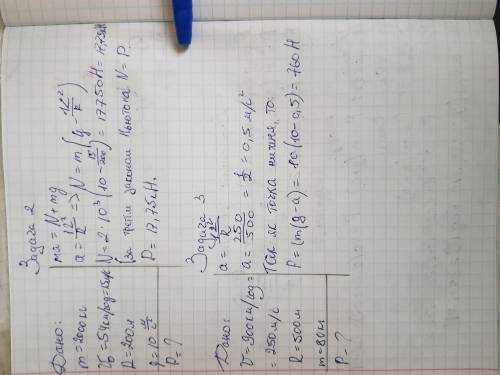 Задача 2
Дано:
m = 2000 кг
V₀ = 54 км/год = 15 м/с
R = 200 м
g = 10 м/с²
P = ?
ma = N + mg
a = V²/R => N = m(g - V²/R)
N = 2·10³(10 - 15/200) = 17750 H = 17,75 кН
За третім законом Ньютона N = P.
P = 17,75 кН.
Задача 3
Дано:
V = 900 км/год =
= 250 м/с
R = 500 м
m = 80 кг
P - ?
a = V²/R
a = 250/500 = 1/2 = 0,5 м/с²
Так як точка нижня, то:
P = (m(g-a) = 80(10-0,5) = 760 H